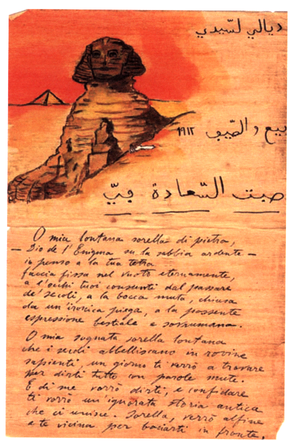 ١٩١٢
O mia lontana sorella di pietra,
— Dio de l'Enigma su la sabbia ardente —
io penso a la tua tetra
faccia fissa nel vuoto eternamente,
a l'occhi tuoi consunti dal passare
de' secoli, a la bocca muta, chiusa
da un'ironica piega, a la possente
espressione bestiale e sovrumana.
O mia sognata sorella lontana
che i secoli abbelliscano in rovine
sapienti, un giorno ti verrò a trovare
per dirti tutto con parole mute.
E di me verrò dirti, e confidare
ti verrò un'ignorata storia antica
che ci unisce. Sorella, verrò alfine
a te vicina per baciarti in fronte.